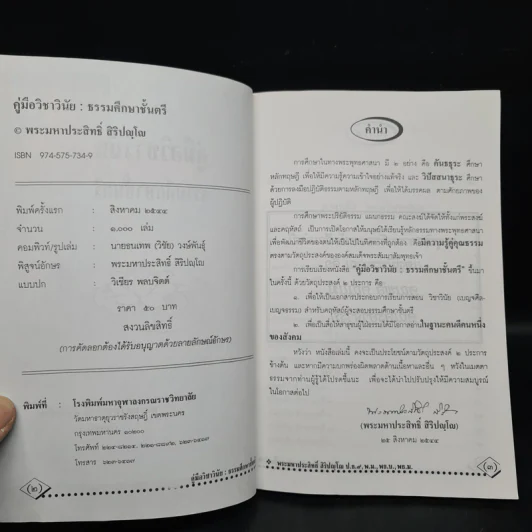 คู่มือวิชาวินัย : ธรรมศึกษาชั้นตรี
© พระมหาประสิทธิ์ สิริปญฺโญ
ISBN 974-575-734-9
พิมพ์ครั้งแรก : สิงหาคม ๒๕๔๔
จำนวน : ๑,๐๐๐ เล่ม
คอมพิวท์/รูปเล่ม : นายธนเทพ (วิชัย) วงษ์พันธุ์
พิสูจน์อักษร : พระมหาประสิทธิ์ สิริปญฺโญ
แบบปก : วิเชียร พลบจิตต์
ราคา ๕๐ บาท
สงวนลิขสิทธิ์
(การคัดลอกต้องได้รับอนุญาตด้วยลายลักษณ์อักษร)
พิมพ์ที่ : โรงพิมพ์มหาจุฬาลงกรณราชวิทยาลัย
วัดมหาธาตุยุวราชรังสฤษฎิ์ เขตพระนคร
กรุงเทพมหานคร ๑๐๒๐๐
โทรศัพท์
โทรสาร
(๒)
คู่มือวิชาวินัย : ธรรมศึกษา
คำนำ
การศึกษาในทางพระพุทธศาสนา มี ๒ อย่าง คือ คันถธุระ ศึกษา
หลักทฤษฎี เพื่อให้มีความรู้ความเข้าใจอย่างแท้จริง และ วิปัสสนาธุระ ศึกษา
ด้วยการลงมือปฏิบัติธรรมตามหลักทฤษฎี เพื่อให้ได้บรรลุผล ตามศักยภาพของ
ผู้ปฏิบัติ
การศึกษาพระปริยัติธรรม แผนกธรรม คณะสงฆ์ได้จัดให้ทั้งแก่พระสงฆ์
และคฤหัสถ์ เป็นการเปิดโอกาสให้มนุษย์ได้เรียนรู้หลักธรรมทางพระพุทธศาสนา
เพื่อพัฒนาชีวิตของตนให้เป็นไปในทิศทางที่ถูกต้อง คือมีความรู้คู่คุณธรรม
ตรงตามวัตถุประสงค์ขององค์สมเด็จพระสัมมาสัมพุทธเจ้า
การเรียบเรียงหนังสือ "คู่มือวิชาวินัย : ธรรมศึกษาชั้นตรี" ขึ้นมา
ในครั้งนี้ ด้วยวัตถุประสงค์ ๒ ประการ คือ
๑. เพื่อให้เป็นเอกสารประกอบการเรียนการสอน วิชาวินัย (เบญจศีล-
เบญจธรรม) สำหรับคฤหัสถ์ผู้จะสอบธรรมศึกษาชั้นตรี
๒. เพื่อเป็นสื่อให้สาธุชนผู้ใฝ่ธรรมได้มีโอกาสอ่านในฐานะคนดีคนหนึ่ง
ของสังคม
หวังว่า หนังสือเล่มนี้ คงจะเป็นประโยชน์ตามวัตถุประสงค์ ๒ ประการ
ข้างต้น และหากมีความบกพร่องผิดพลาดด้านเนื้อหาและอื่น ๆ หวังในเมตตา
ธรรมจากท่านผู้รู้ได้โปรดชี้แนะ เพื่อจะได้นำไปปรับปรุงให้มีความสมบูรณ์
ในโอกาสต่อไป
(พระมหาประสิทธิ์ สิริปญฺโญ)
๒๕ สิงหาคม ๒๕๔๔
พระมหาประสิทธิ์ สิริปญฺโญ ป.ธ.๙, พ.ม., พธ.บ., พธ.ม.
(๓)